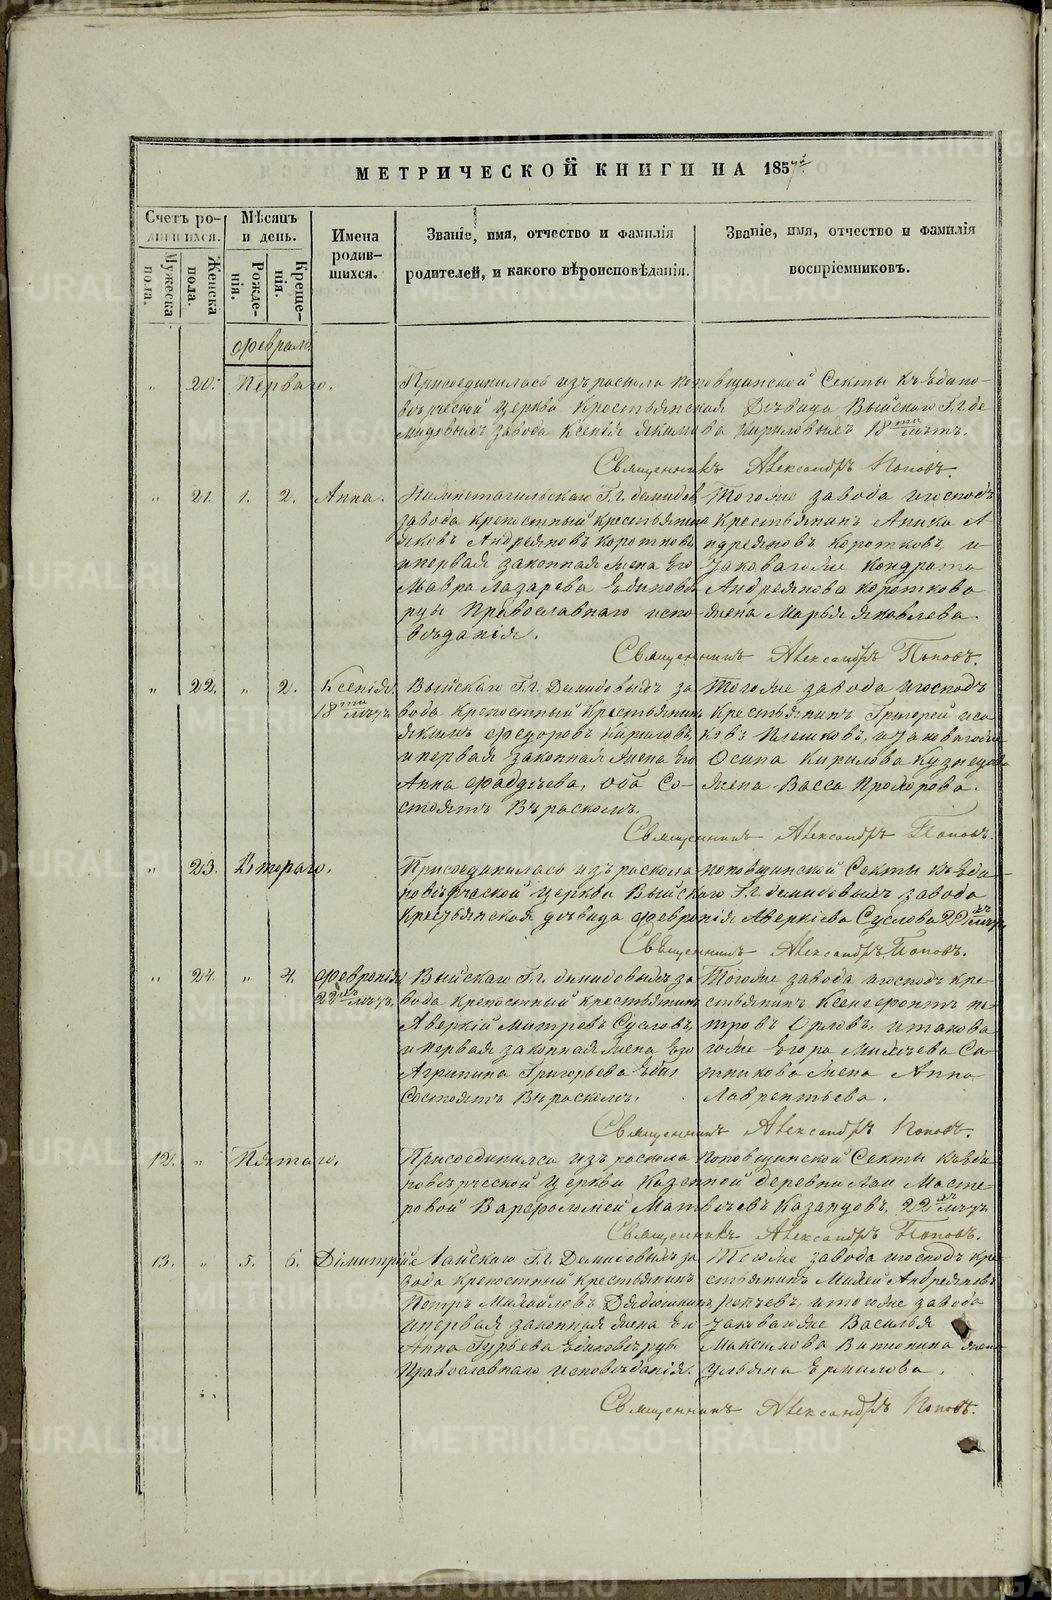 МЕТРИЧЕСКОЙ КНИГИ НА 185
Счетъ ро-
дившихся.
Мужеска пола.
Женска пола.
Мѣсяцъ
и день.
Рожде-
нія.
Креще-
нія.
Имена
родив-
шихся.
Званіе, имя, отчество и фамилія
родителей, и какого вѣроисповѣданія.
Званіе, имя, отчество и фамилія
воспріемниковъ.
Февраль.
" 20. Перваго.
Присоединилась изъ раскола поповщинской Секты къ Едино-
вѣрческой Церкви Крестьянская Дѣвица Выйскаго Г.г. де
мидовыхъ завода Ксенія Якимова Кириловыхъ 18ти лѣтъ.
Священникъ Александръ Поповъ.
" 21. 1. 2. Анна.
Нижнетагильскаго Г.г. демидов
завода крепостный крестьянинъ
Яковъ Андреяновъ Коротковъ
и первая законная жена Его
Мавра Лазарева Единовѣ
рцы Православнаго испо-
вѣданія.
Тогоже завода и господъ
Крестьянинъ Аника А
ндреяновъ Коротковъ, и
таковагоже Кондрата
Андреянова Короткова
жена Марья Яковлева.
Священникъ Александръ Поповъ.
" 22. " 2. Ксенія
18ти лѣтъ
Выйскаго Г.г. Демидовыхъ за
вода крепостный Крестьянинъ
Якимъ Федоровъ Кириловъ,
и первая законная жена Его
Анна Фаддѣева, оба Со-
стоятъ въ расколѣ.
Тогоже завода и господъ
Крестьянинъ Григорей Иса
ковъ Плешковъ, и таковагоже
Осипа Кирилова Кузнецова
жена Васса Прохорова.
Священникъ Александръ Поповъ.
" 23. Втораго.
Присоединилась изъ раскола поповщинской Секты къ Еди-
новѣрческой церкви Выйскаго Г.г. демидовыхъ завода
Крестьянская дѣвица Феврония Аверкіева Суслова 22хъ лѣтъ
Священникъ Александръ Поповъ.
" 24. " 4. Февронія
22хъ лѣтъ,
Выйскаго Г.г. демидовыхъ за
вода крепостный крестьянинъ
Аверкій Митревъ Сусловъ,
и первая законная жена Его
Агрипина Григорьева
Состоятъ въ расколѣ.
Тогоже завода и господъ кре
стьянинъ Ксенофонтъ пе-
тровъ Орловъ, и такова
гоже Егора Михѣева Си-
тникова жена Анна
Лаврентьева.
Священникъ Александръ Поповъ.
12. " Пятаго.
Присоединился изъ раскола поповщинской Секты къ Еди
новѣрческой Церкви Казенной деревни Лаи Масте-
ровой Варфоломей Матвѣевъ Казанцовъ, 22хъ лѣтъ
Священникъ Александръ Поповъ.
13. " 5. 6. Димитрій
Лайскаго Г.г. Демидовыхъ за
вода крепостный крестьянинъ
Петръ Михайловъ Дядюшкинъ,
и первая законная жена Его
Анна Гурьева Единовѣрцы
Православнаго исповѣданія.
Тогоже завода и господъ кре
стьянинъ Михей Андреяновъ
и тогоже завода
таковагоже Василья
Максимова Ватюпина жена
Ульяна Ермилова.
Священникъ Александръ Поповъ.
METRIKI.GASO-URAL.RU